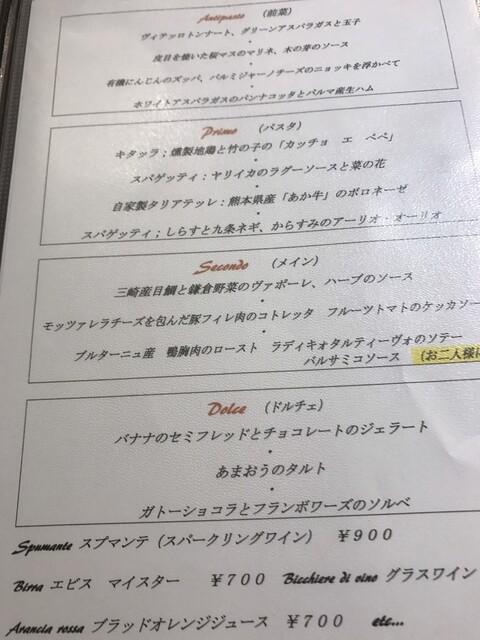 Antipasto （前菜）
ヴィテッロトンナート、グリーンアスパラガスと玉子
皮目を焼いた桜マスのマリネ、木の芽のソース
有機にんじんのズッパ、パルミジャーノチーズのニョッキを浮かべて
ホワイトアスパラガスのパンナコッタとパルマ産生ハム
Primo （パスタ）
キタッラ；燻製地鶏と竹の子の「カッチョ　エ　ペペ」
スパゲッティ：ヤリイカのラグーソースと菜の花
自家製タリアテッレ：熊本県産「あか牛」のボロネーゼ
スパゲッティ；しらすと九条ネギ、からすみのアーリオ・オーリオ
Secondo （メイン）
三崎産目鯛と鎌倉野菜のヴァポーレ、ハーブのソース
モッツァレラチーズを包んだ豚フィレ肉のコトレッタ　フルーツトマトのケッカソー
ブルターニュ産　鴨胸肉のロースト　ラディキオタルティーヴォのソテー
バルサミコソース　（お二人様に
Dolce （ドルチェ）
バナナのセミフレッドとチョコレートのジェラート
あまおうのタルト
ガトーショコラとフランボワーズのソルベ
Spumante スプマンテ（スパークリングワイン）　￥９００
Birra エビス　マイスター　￥７００　Bicchiere di vino グラスワイン
Arancia rossa ブラッドオレンジジュース　￥７００　etc...